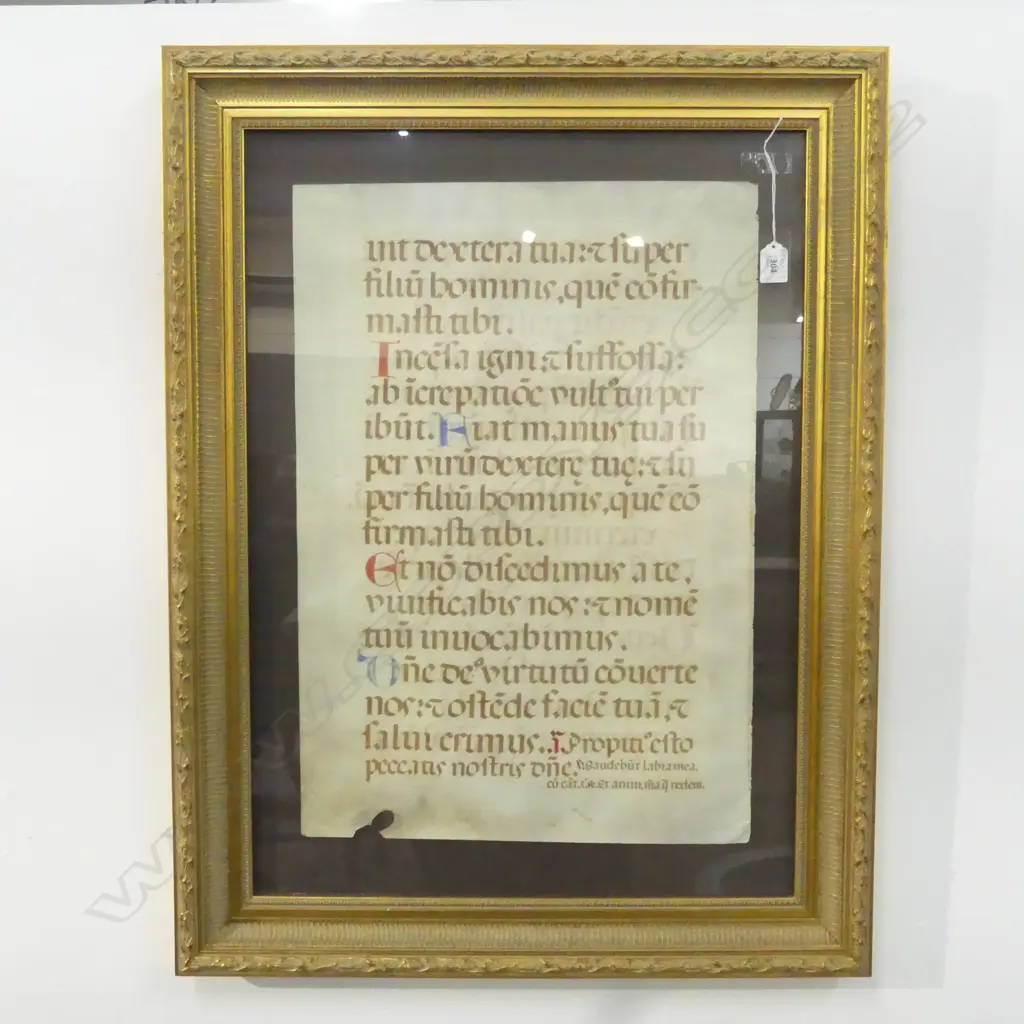 uit dextera tua: ⁊ super
filiū hominis, quē cōfir-
masti tibi.
Incēsa igni: ⁊ suffossa:
ab īcrepatiōe vultꝰ tui per
ibūt. Fiat manus tua su
per virū dexterę tuę: ⁊ su
per filiū hominis, quē cō
firmasti tibi.
Et nō discedimus a te,
viuificabis nos: ⁊ nomē
tuū inuocabimus.
Dn̄e deꝰ virtutū cōuerte
nos: ⁊ ostēde faciē tuā, ⁊
salui erimus. Propitiꝰ esto
peccatis nostris dn̄e. Gaudebūt labia mea.
304